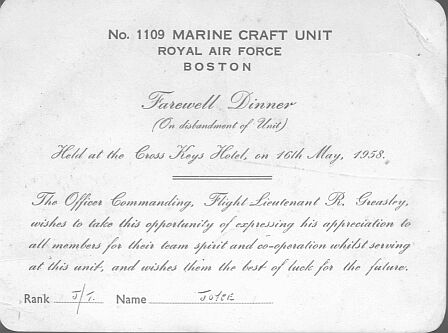 No. 1109 MARINE CRAFT UNIT
ROYAL AIR FORCE
BOSTON
Farewell Dinner
(On disbandment of Unit)
Held at the Cross Keys Hotel, on 16th May, 1958.
The Officer Commanding, Flight Lieutenant R. Greasley,
wishes to take this opportunity of expressing his appreciation to
all members for their team spirit and co-operation whilst serving
at this unit, and wishes them the best of luck for the future.
Rank J/T. Name JOYCE